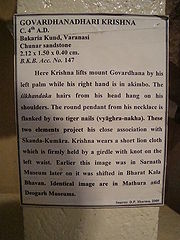 GOVARDHANADHARI KRISHNA
C. 4th A.D.
Bakaria Kund, Varanasi
Chunar sandstone
2.12 x 1.50 x 0.40 cm.
B.K.B. Acc. No. 147
Here Krishna lifts mount Govardhana by his
left palm while his right hand is in akimbo. The
śikhandaka hairs from his head hang on his
shoulders. The round pendant from his necklace is
flanked by two tiger nails (vyāghra-nakha). These
two elements project his close association with
Skanda-Kumāra. Krishna wears a short lion cloth
which is firmly held by a girdle with knot on the
left waist. Earlier this image was in Sarnath
Museum later on it was shifted in Bharat Kala
Bhavan. Identical image are in Mathura and
Deogarh Museums.
Source: D.P. Sharma, 2009